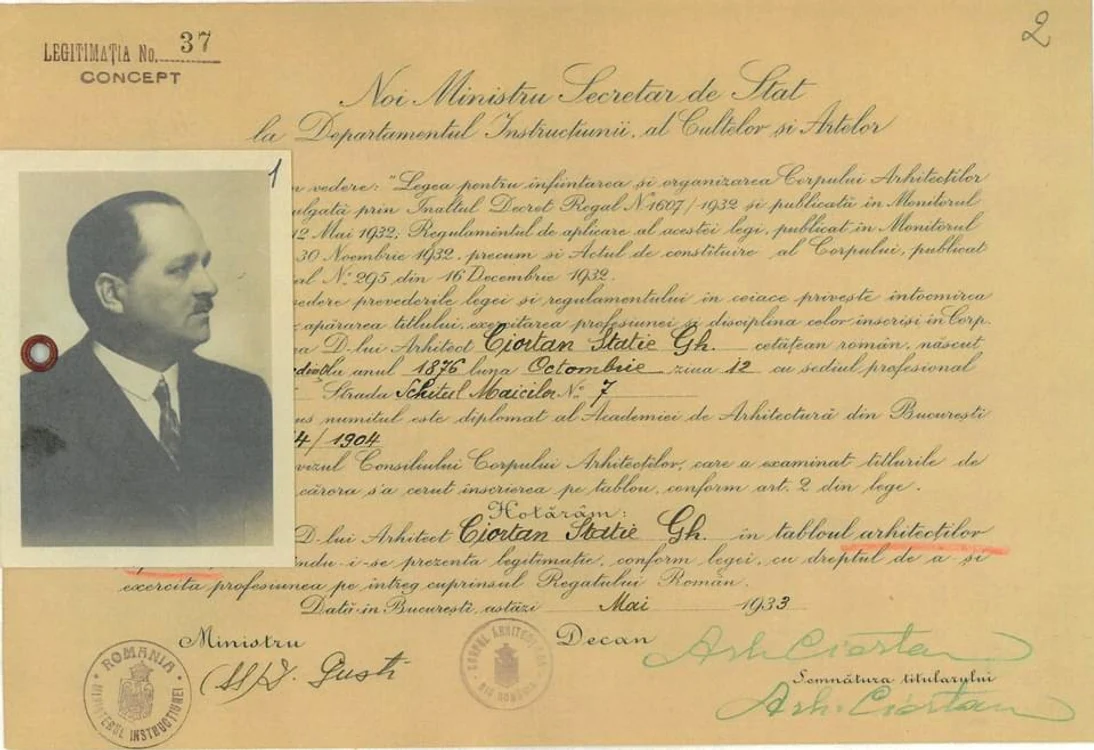 LEGITIMAȚIA No. 37
CONCEPT
2
Noi Ministru Secretar de Stat
la Departamentul Instrucțiunii, al Cultelor si Artelor
1
n vedere: "Legea pentru înființarea și organizarea Corpului Arhitecților
ulgată prin Inaltul Decret Regal Nº 1607/1932 și publicată în Monitorul
12 Mai 1932; Regulamintul de aplicare al acestei legi, publicat în Monitorul
30 Noembrie 1932, precum si Actul de constituire al Corpului, publicat
al Nº 295 din 16 Decembrie 1932.
vedere prevederile legei și regulamentului în ceiace privește întocmirea
apărarea titlului, exercitarea profesiunei și disciplina celor înscriși în Corp.
a D-lui Arhitect Ciortan Statie Gh. cetățean român, născut
anul 1876 luna Octombrie ziua 12 cu sediul profesional
Strada Schitul Maicilor No 7
us numitul este diplomat al Academiei de Arhitectură din București
4/1904
vizul Consiliului Corpului Arhitecților, care a examinat titlurile de
cărora s'a cerut înscrierea pe tablou, conform art. 2 din lege.
Hotărâm:
D-lui Arhitect Ciortan Statie Gh. în tabloul arhitecților
ndu-i-se prezenta legitimatie, conform legei, cu dreptul de a și
exercita profesiunea pe întreg cuprinsul Regatului Român.
Dată in București, astăzi Mai 1933
Ministru
(ss) D. Gusti
Decan
Arh Ciortan
Semnătura titularului
Arh. Ciortan
ROMANIA
MINISTERUL INSTRUCTIUNEI
CORPUL ARHITECTILOR
DIN ROMANIA